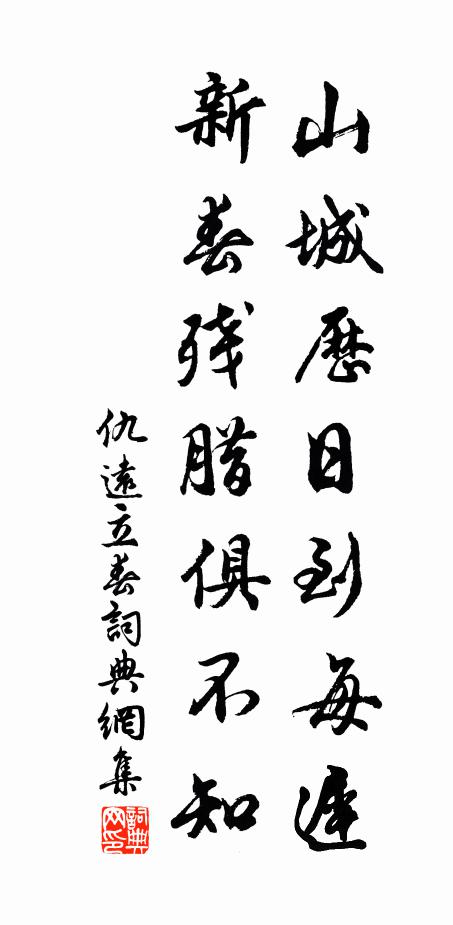 山城曆日到每遲
新春殘腊俱不知
仇遠立春詞典網集
詞典网印